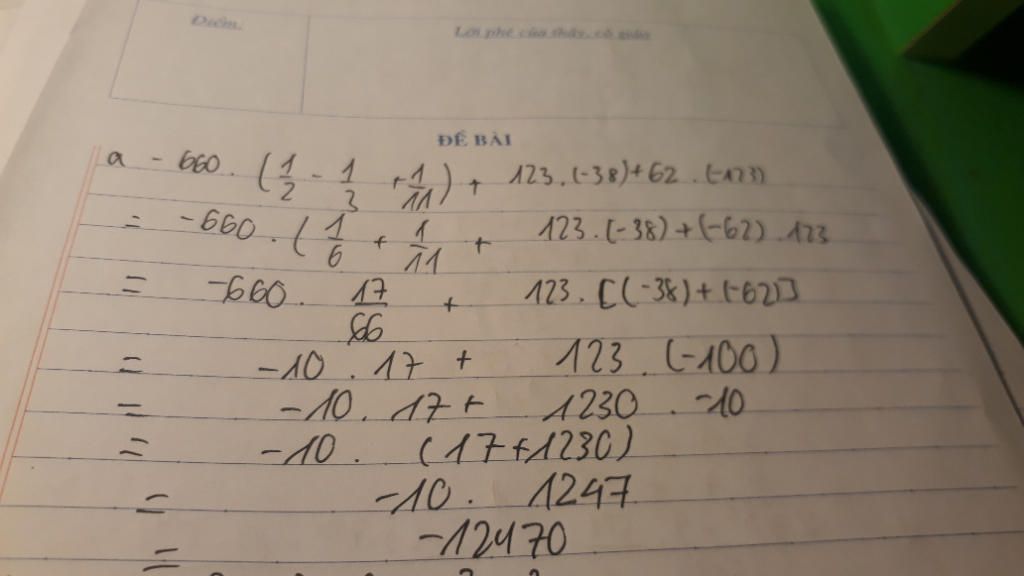 Điểm. Lời phê của thầy, cô giáo
ĐỀ BÀI
a - 660 . (1/2 - 1/3 + 1/11) + 123.(-38)+62 . (-123)
= -660 . (1/6 + 1/11 + 123.(-38)+(-62).123
= -660. 17/66 + 123.[(-38)+(-62)]
= -10 . 17 + 123.(-100)
= -10. 17+ 1230 . -10
= -10. (17+1230)
= -10. 1247
= -12470